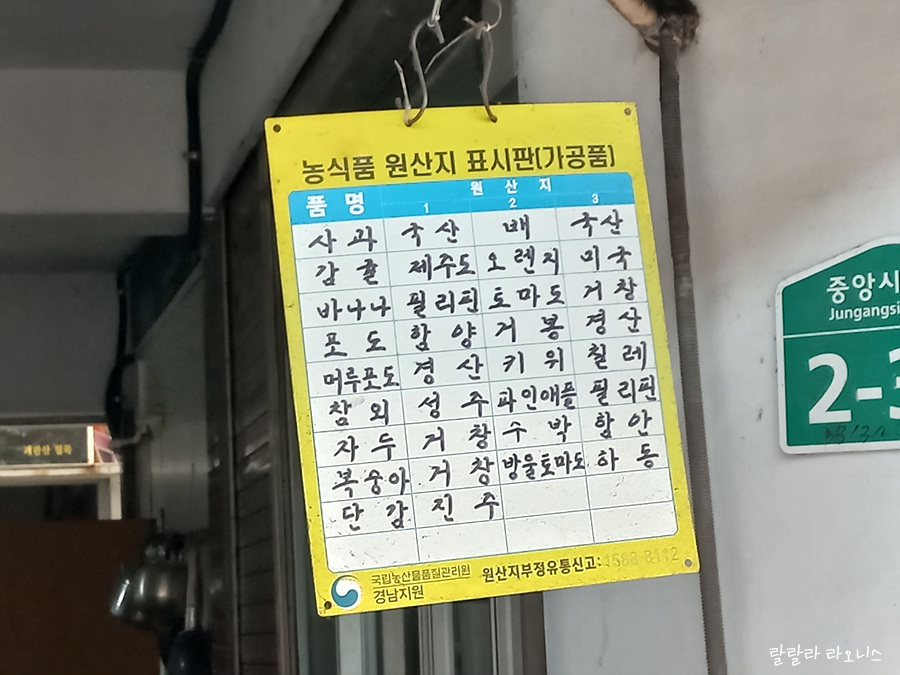 농식품 원산지 표시판(가공품)
품 명 원 산 지
1 2 3
사 과 국 산 배 국 산
감 귤 제주도 오렌지 미 국
바나나 필리핀 토마도 거 창
포 도 함 양 거 봉 경 산
머루포도 경 산 키 위 칠 레
참 외 성 주 파인애플 필리핀
자 두 거 창 수 박 함 안
복숭아 거 창 방울토마도 하 동
단 감 진 주
국립농산물품질관리원
경남지원
원산지부정유통신고:1588-8112
중앙시
Jungangsi
2-3
랄랄라 라오니스